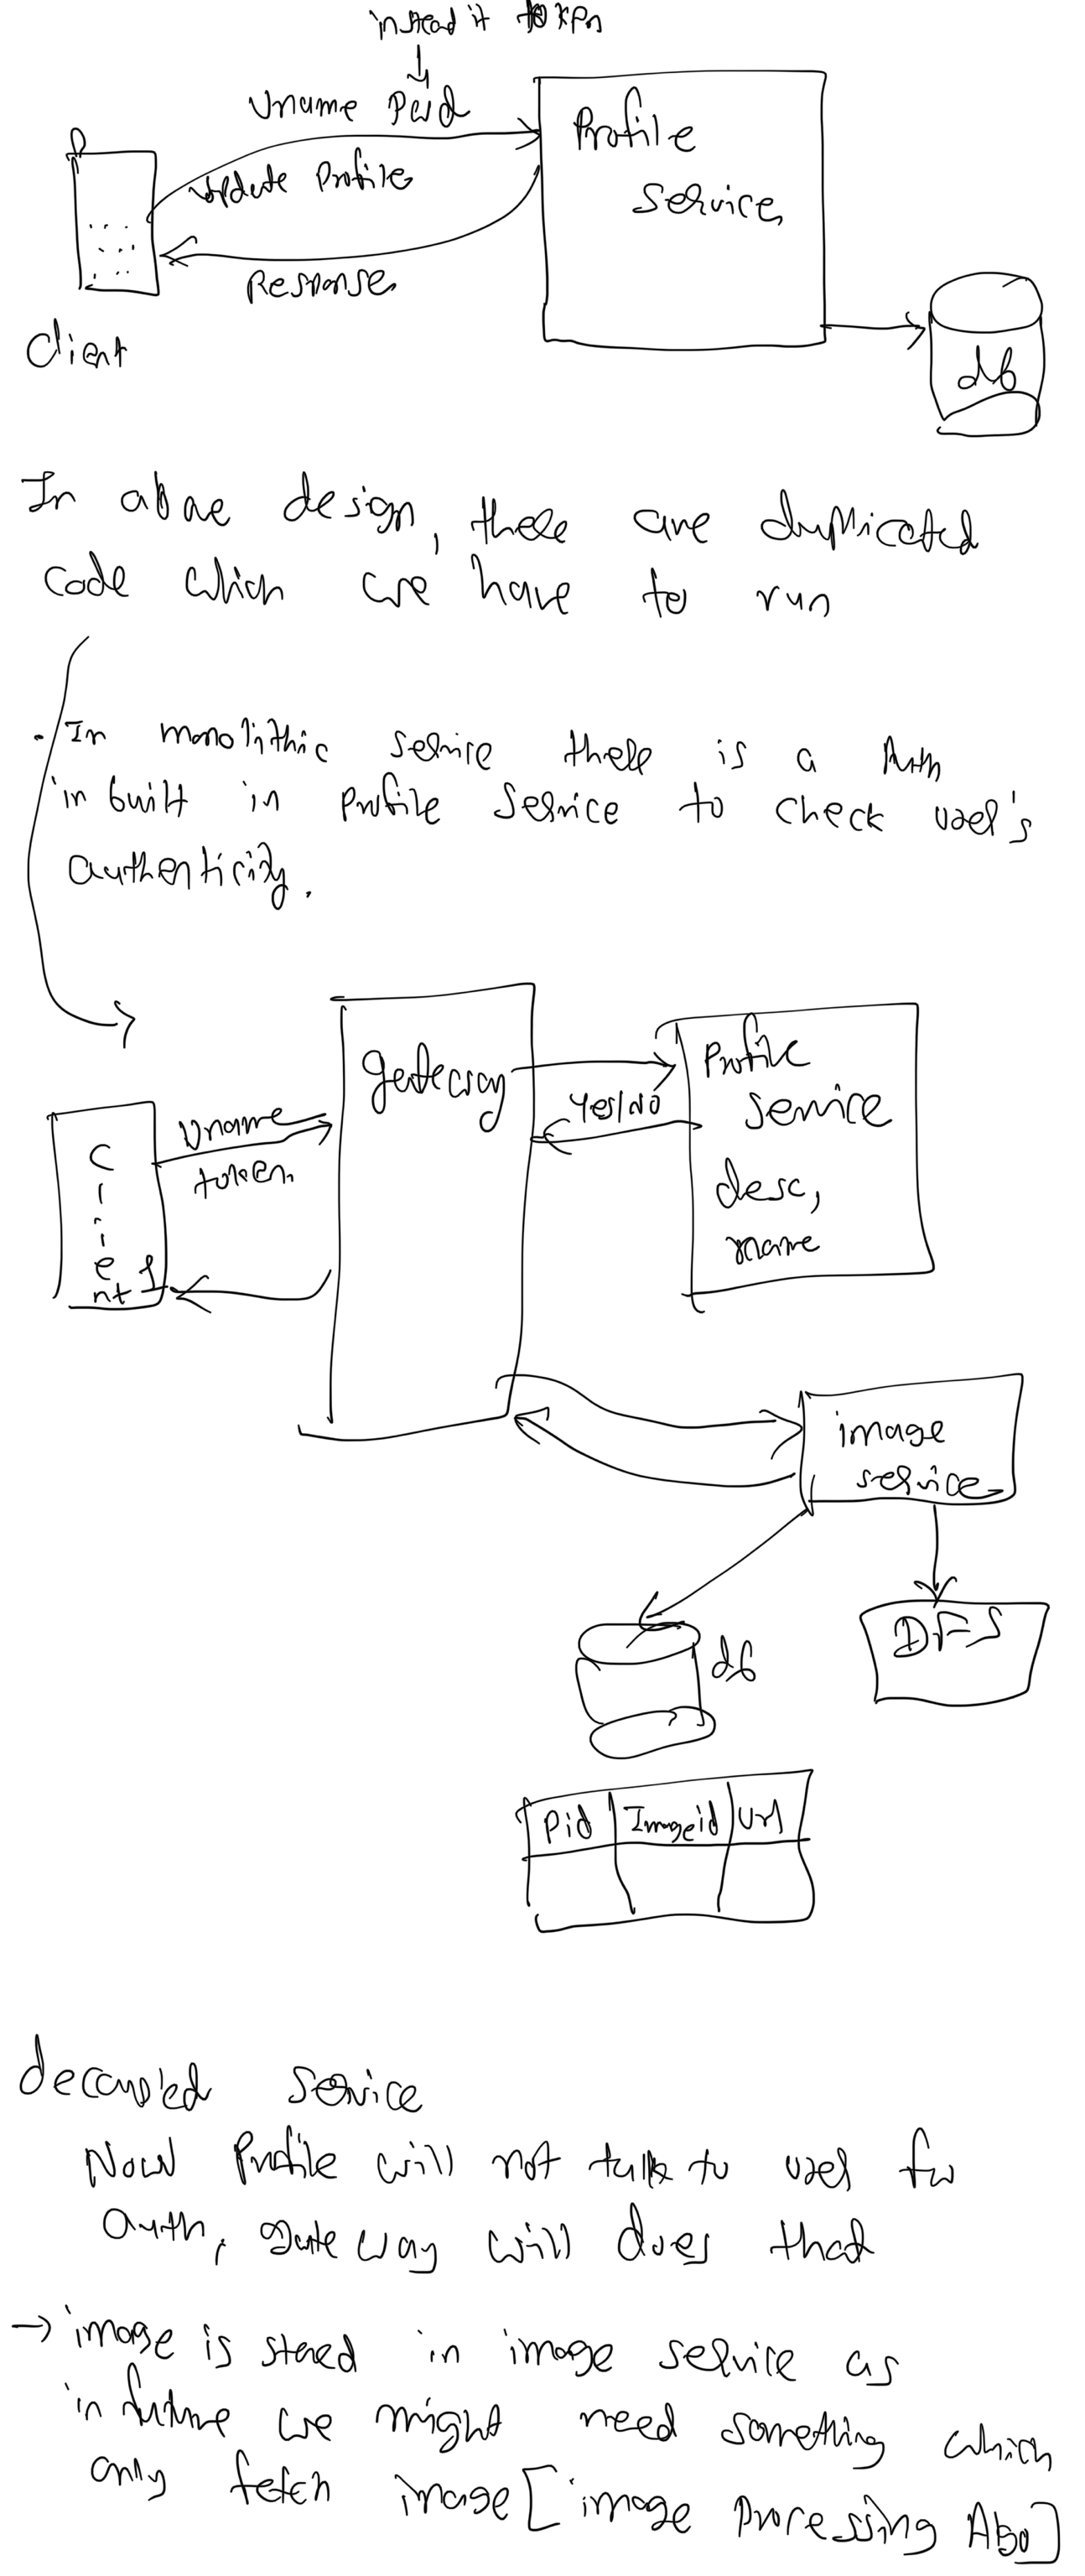 instead it token
Uname Pwd
Profile
Service
Update Profile
Response
Client
db
In above design, there are duplicated
code which we have to run
. In monolithic service there is a Auth
in built in profile service to check user's
authenticity.
gateway
Profile
Service
desc,
name
Yes/No
Uname
token
Client 1
image
service
DFS
db
Pid Imageid Url
decoupled service
Now Profile will not talk to user for
auth, gateway will does that
→ image is stored in image service as
in future we might need something which
only fetch image [image processing Algo]